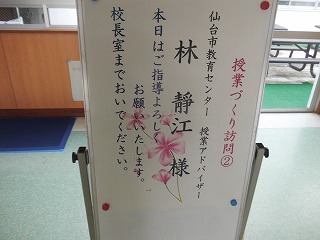 授業づくり訪問②
仙台市教育センター 授業アドバイザー
林 靜江 様
本日はご指導よろしく
お願いいたします。
校長室までおいでください。